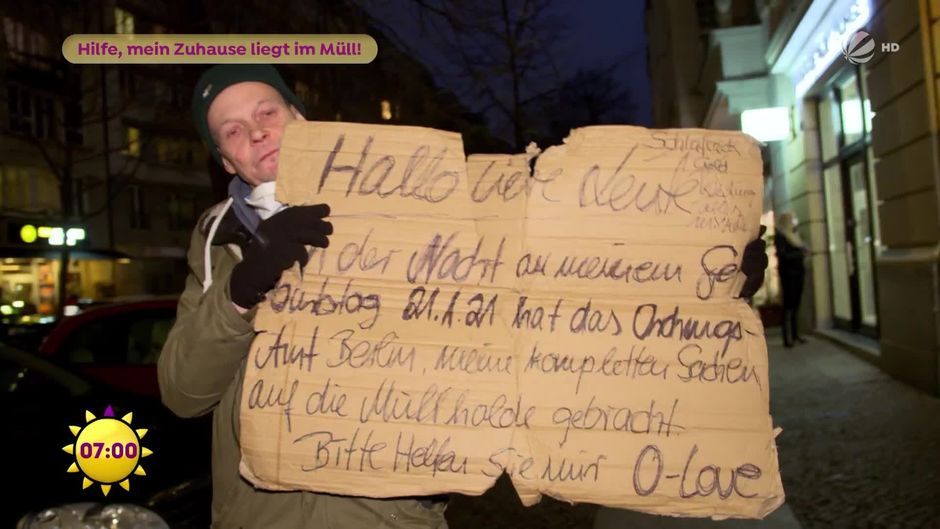 Hilfe, mein Zuhause liegt im Müll!
HD
Hallo liebe Leute
Schlafsack
Geld
Kleidung
alles
In der Nacht an meinem Ge-
burtstag 21.1.21 hat das Ordnungs-
Amt Berlin, meine kompletten Sachen
auf die Müllhalde gebracht.
Bitte Helfen Sie mir O-Love
07:00